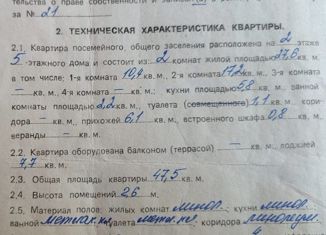 тельства о праве собственности и
за № 21
2. ТЕХНИЧЕСКАЯ ХАРАКТЕРИСТИКА КВАРТИРЫ.
2.1. Квартира посемейного, общего заселения расположена на 2 этаже
5-этажного дома и состоит из: 2 комнат жилой площадью 27,6 кв. м,
в том числе: 1-я комната 10,4 кв. м., 2-я комната 17,2 кв. м., 3-я комната
— кв. м., 4-я — кв. м., кухни площадью 5,8 кв. м., ванной
комнаты площадью 2,2 кв. м., туалета (совмещенного) 1,1 кв. м., кори-
дора — кв. м., прихожей 6,1 кв. м., встроенного шкафа 0,8 кв. м.,
веранды — кв. м.
2.2. Квартира оборудована балконом (террасой) — кв. м., лоджией
7,7 кв. м.
2.3. Общая площадь квартиры 47,5 кв. м.
2.4. Высота помещений 2,6 м.
2.5. Материал полов: жилых комнат линол., кухни линол.
ванной метлах. пл, туалета метл. пл., коридора линолеум.